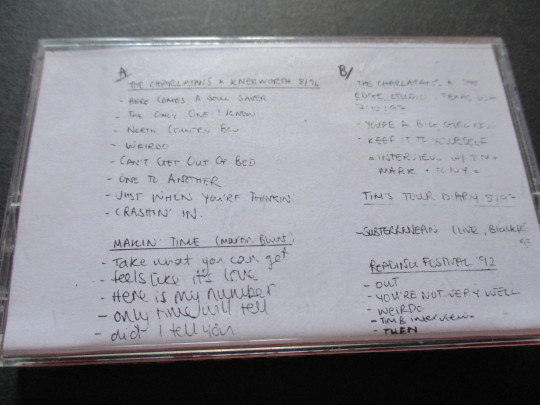 A
THE CHARLATANS + KNEBWORTH 8/96
- HERE COMES A SOUL SAVER
- THE ONLY ONE I KNOW
- NORTH COUNTRY BOY
- WEIRDO
- CAN'T GET OUT OF BED
- ONE TO ANOTHER
- JUST WHEN YOU'RE THINKIN
- CRASHIN' IN
MAKIN TIME (MARTIN BLUNT)
- Take what you can get
- feels like it's love
- Here is my number
- only time will tell
- did I tell you
B/
THE CHARLATANS THE
EDGE STUDIO TEXAS
- YOU'RE A BIG
- KEEP IT TO YOURSELF
= INTERVIEW W/ TIM
MARK + TONY =
TIM'S TOUR DIARY 5/92
- SUBTERRANEAN (LIVE,
READING FESTIVAL '92
- OUT
- YOU'RE NOT VERY WELL
- WEIRDO
- TIM B interview
- THEN